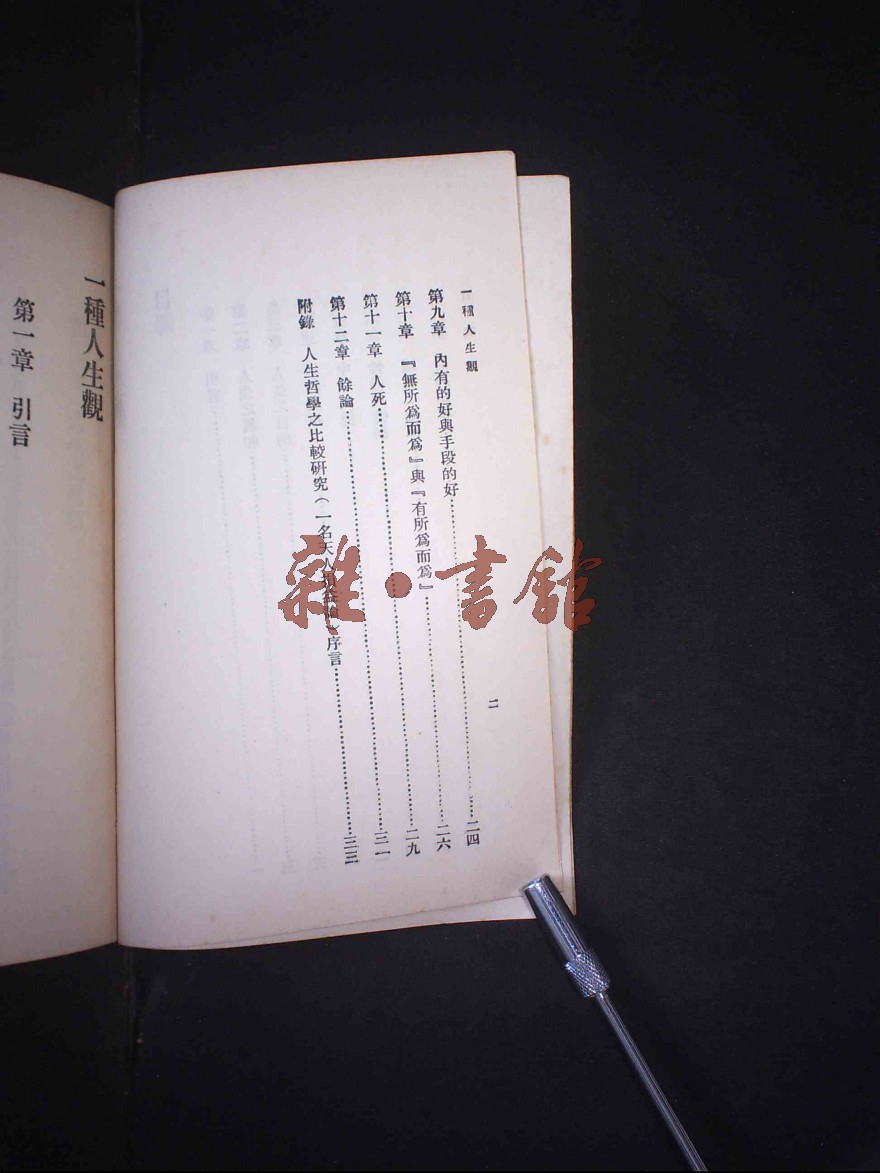 一種人生觀
二
第九章　內有的好與手段的好……二四
第十章　『無所爲而爲』與『有所爲而爲』……二六
第十一章　人死……二九
第十二章　餘論……三一
附錄　人生哲學之比較研究（一名天人損益論）序言……三三
一種人生觀
第一章　引言
雜·書館